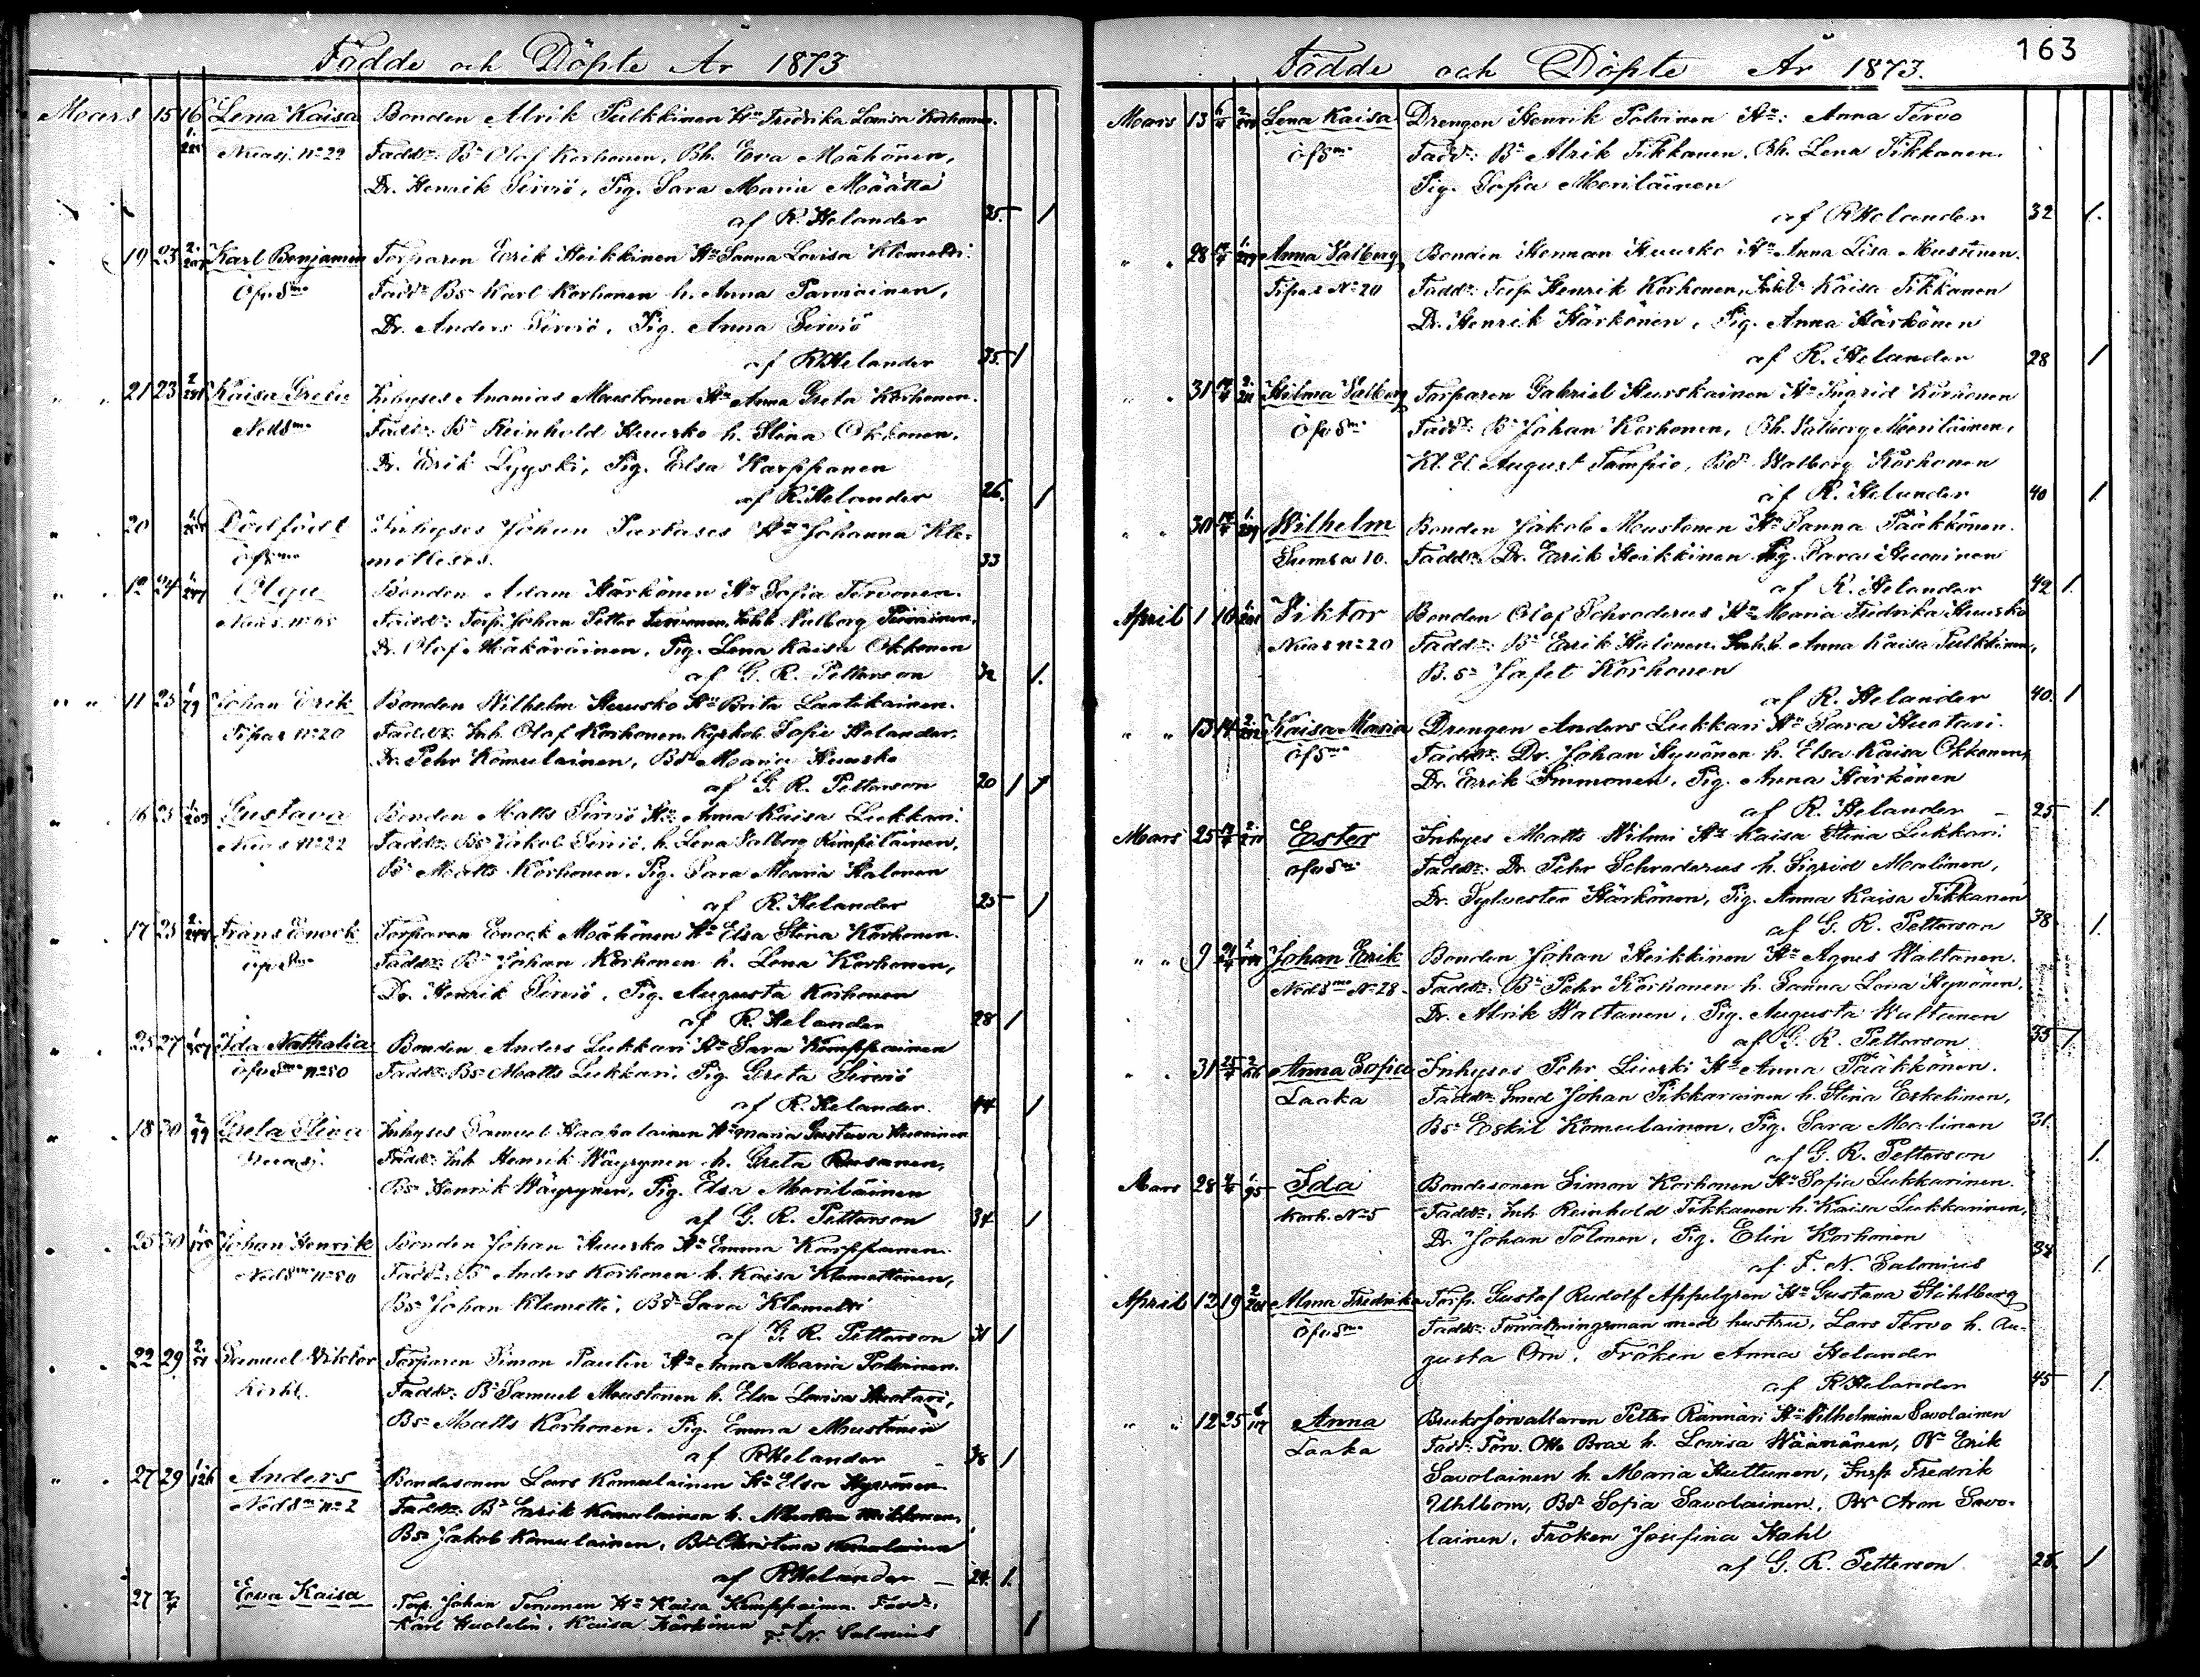 Födde och Döpte År 1873
Mars 15 16 Lena Kaisa Bonden Alrik Pulkkinen Hu Fredrika Lovisa Korhonen.
No 22 Fadd: Bn Olof Korhonen, Bh. Eva Mähönen,
Dr. Henrik Sirviö, Pig. Sara Maria Määttä
af R. Helander 35 1
19 23 Karl Benjamin Torparen Erik Heikkinen Hu Sanna Lovisa Klemetti.
Fadd: Bs Karl Korhonen h. Anna Parviainen,
Dr. Anders Sirviö, Pig. Anna Sirviö
af R. Helander 35 1
21 23 Kaisa Greta Inhyses Ananias Mustonen Hu Anna Greta Korhonen.
Fadd: Bn Reinhold Huusko h. Stina Okkonen.
Dr. Erik Lyyski, Pig. Elsa Karppanen
af R. Helander 26. 1
20 Dödfödt Inhyses Johan Hu Johanna Kle-
33
24 Olga Bonden Adam Härkönen Hu Sofia Tervonen.
Fadd: Torp. Johan Petter Tervonen, Walborg
Dr. Olof Mäkäräinen, Pig. Lena Kaisa Okkonen
af G. R. Petterson 32 1.
11 25 Johan Erik Bonden Wilhelm Huusko Hu Brita Laatikainen.
No 20 Fadd: Inh. Olof Korhonen, Sofie Helander,
Dr. Pehr Komulainen, Bdr Maria Huusko
af G. R. Petterson 20 1 1
16 25 Gustava Bonden Matts Sirviö Hu Anna Kaisa Lukkari.
No 22 Fadd: Bs Jakob Sirviö, h. Lena Valborg Kempiläinen,
Bs Matts Korhonen, Pig. Sara Maria Halonen
af R. Helander 25 1
17 25 Frans Enock Torparen Enock Mähönen Hu Elsa Stina Korhonen.
Fadd: Bn Johan Korhonen h. Lena Korhonen,
Dr. Henrik Sirviö, Pig. Augusta Korhonen
af R. Helander 28 1
25 27 Ida Nathalia Bonden Anders Lukkari Hu Sara Komppainen
No 50 Fadd: Bs Matts Lukkari, Pig. Greta Sirviö
af R. Helander. 44 1
18 30 Greta Stina Inhyses Samuel Haapalainen Hu Maria Gustava
Fadd: Inh Henrik Wäyrynen h. Greta Rusanen,
Bs Henrik Wäyrynen, Pig. Elsa Meriläinen
af G. R. Petterson 34 1
25 30 Johan Henrik Bonden Johan Huusko Hu Emma Karppanen.
Fadd: Bs Anders Korhonen h. Kaisa Klemettinen,
Bs Johan Klemetti, Bdr Sara Klemetti
af G. R. Petterson 31 1
22 29 Samuel Viktor Torparen Simon Paulin Hu Anna Maria
Fadd: Bn Samuel Mustonen h. Elsa Lovisa Huotari,
Bs Matts Korhonen, Pig. Emma Mustonen
af R Helander 1
27 29 Anders Bondesonen Lars Komulainen Hu Elsa Hyvönen.
No 2 Fadd: Bn Erik Komulainen h.
Bs Jakob Komulainen, Bdr Christina Komulainen
af R Helander 24. 1.
27 Eva Kaisa Torp. Johan Tervonen Hu Kaisa Kemppainen. Fadd:
Karl Kaisa Härkönen F. N. Salonius 1
Födde och Döpte År 1873. 163
Mars 13 Lena Kaisa Drengen Henrik Hu: Anna Tervo
Fadd: Bn Alrik Tikkanen, Bh. Lena Tikkanen.
Pig. Sofia Meriläinen
af R Helander 32 1.
28 Anna Valborg Bonden Herman Huusko Hu Anna Lisa Mustonen.
No 20 Fadd: Torp Henrik Korhonen, Kaisa Tikkanen
Dr. Henrik Härkönen, Pig. Anna Härkönen
af R. Helander 28 1
31 Hilma Valborg Torparen Gabriel Huuskainen Hu Ingrid Korhonen
Fadd: Bn Johan Korhonen, Bh. Valborg Meriläinen,
Kl. El. August Tamfric, Bdr Walborg Korhonen
af R. Helander 40 1.
30 Wilhelm Bonden Jakob Mustonen Hu Sanna Pääkkönen.
Sumsa 10. Fadd: Dr. Erik Heikkinen Pig. Sara
af R. Helander 42 1.
April 1 10 Viktor Bonden Olof Schroderus Hu Maria Fredrika Huusko
No 20 Fadd: Bn Erik Halonen, Anna Kaisa Pulkkinen,
B. s Jafet Korhonen
af R. Helander 40. 1
13 14 Kaisa Maria Drengen Anders Lukkari Hu Sara Huotari.
Fadd: Dr. Johan Hyvönen h. Elsa Kaisa Okkonen,
Dr. Erik Immonen, Pig. Anna Härkönen
af R. Helander 25 1.
Mars 25 Ester Inhyses Matts Wilmi Hu Kaisa Stina Lukkari.
Fadd: Dr. Pehr Schroderus h. Sigrid Malinen,
Dr. Sylvester Härkönen, Pig. Anna Kaisa Tikkanen
af G. R. Petterson 38 1.
9 Johan Erik Bonden Johan Heikkinen Hu Agnes Waltanen.
No 28 Fadd: Bn Pehr Korhonen h. Sanna Lena Hyvönen,
Dr. Alrik Waltanen, Pig. Augusta Waltanen
af G. R. Petterson 35 1.
31 Anna Sofia Inhyses Pehr Liuski Hu Anna Pääkkönen.
Laaka Fadd: Smed Johan Pikkarainen h. Stina Eskelinen,
Bs Eskil Komulainen, Pig. Sara Malinen 31.
af G. R. Petterson 1.
Mars 28 Ida Bondesonen Simon Korhonen Hu Sofia Lukkarinen.
Korh. No 5 Fadd: Inh. Reinhold Tikkanen h. Kaisa Lukkarinen,
Dr Johan Tolonen, Pig. Elin Korhonen 34
af F. N. Salonius 1.
April 12 19 Alma Fredrika Torp. Gustaf Rudolf Appelgren Hu Gustava Ståhlberg
Fadd: Forrättningsman med hustru, Lars Tervo h. Au-
gusta Orn, Fröken Anna Helander
af R Helander 45 1.
12 25 Anna Bruksförvaltaren Petter Rännäri Hu Vilhelmina Savolainen
Laaka Fadd: Förv. Otto Brax h. Lovisa Väänänen, Bn Erik
Savolainen h. Maria Huttunen, Insp. Fredrik
Uhlbom, Bdr Sofia Savolainen, Bs Aron Savo-
lainen, Fröken Josefina Hahl
af G. R. Petterson 28. 1